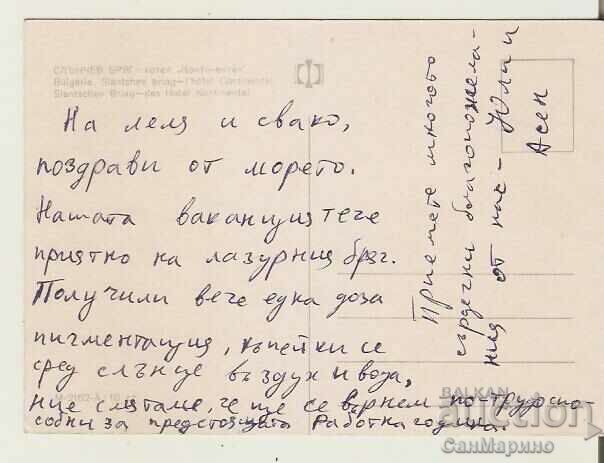 СЛЪНЧЕВ БРЯГ - хотел „Континентал“
Bulgarie. Slantchev Briag - l'hôtel Continental
Slantschev Briag - das Hotel Kontinental
На леля и свако,
поздрави от морето.
Нашата ваканция тече
приятно на лазурния бряг.
Получили вече една доза
пигментация, къпейки се
сред слънце въздух и вода,
ние смятаме, че ще се върнем по-трудоспо-
собни за предстоящата работна година.
Приемете многото
сърдечни благопожела-
ния от нас - Юли и
Асен
BALKAN
auction
СанМарино